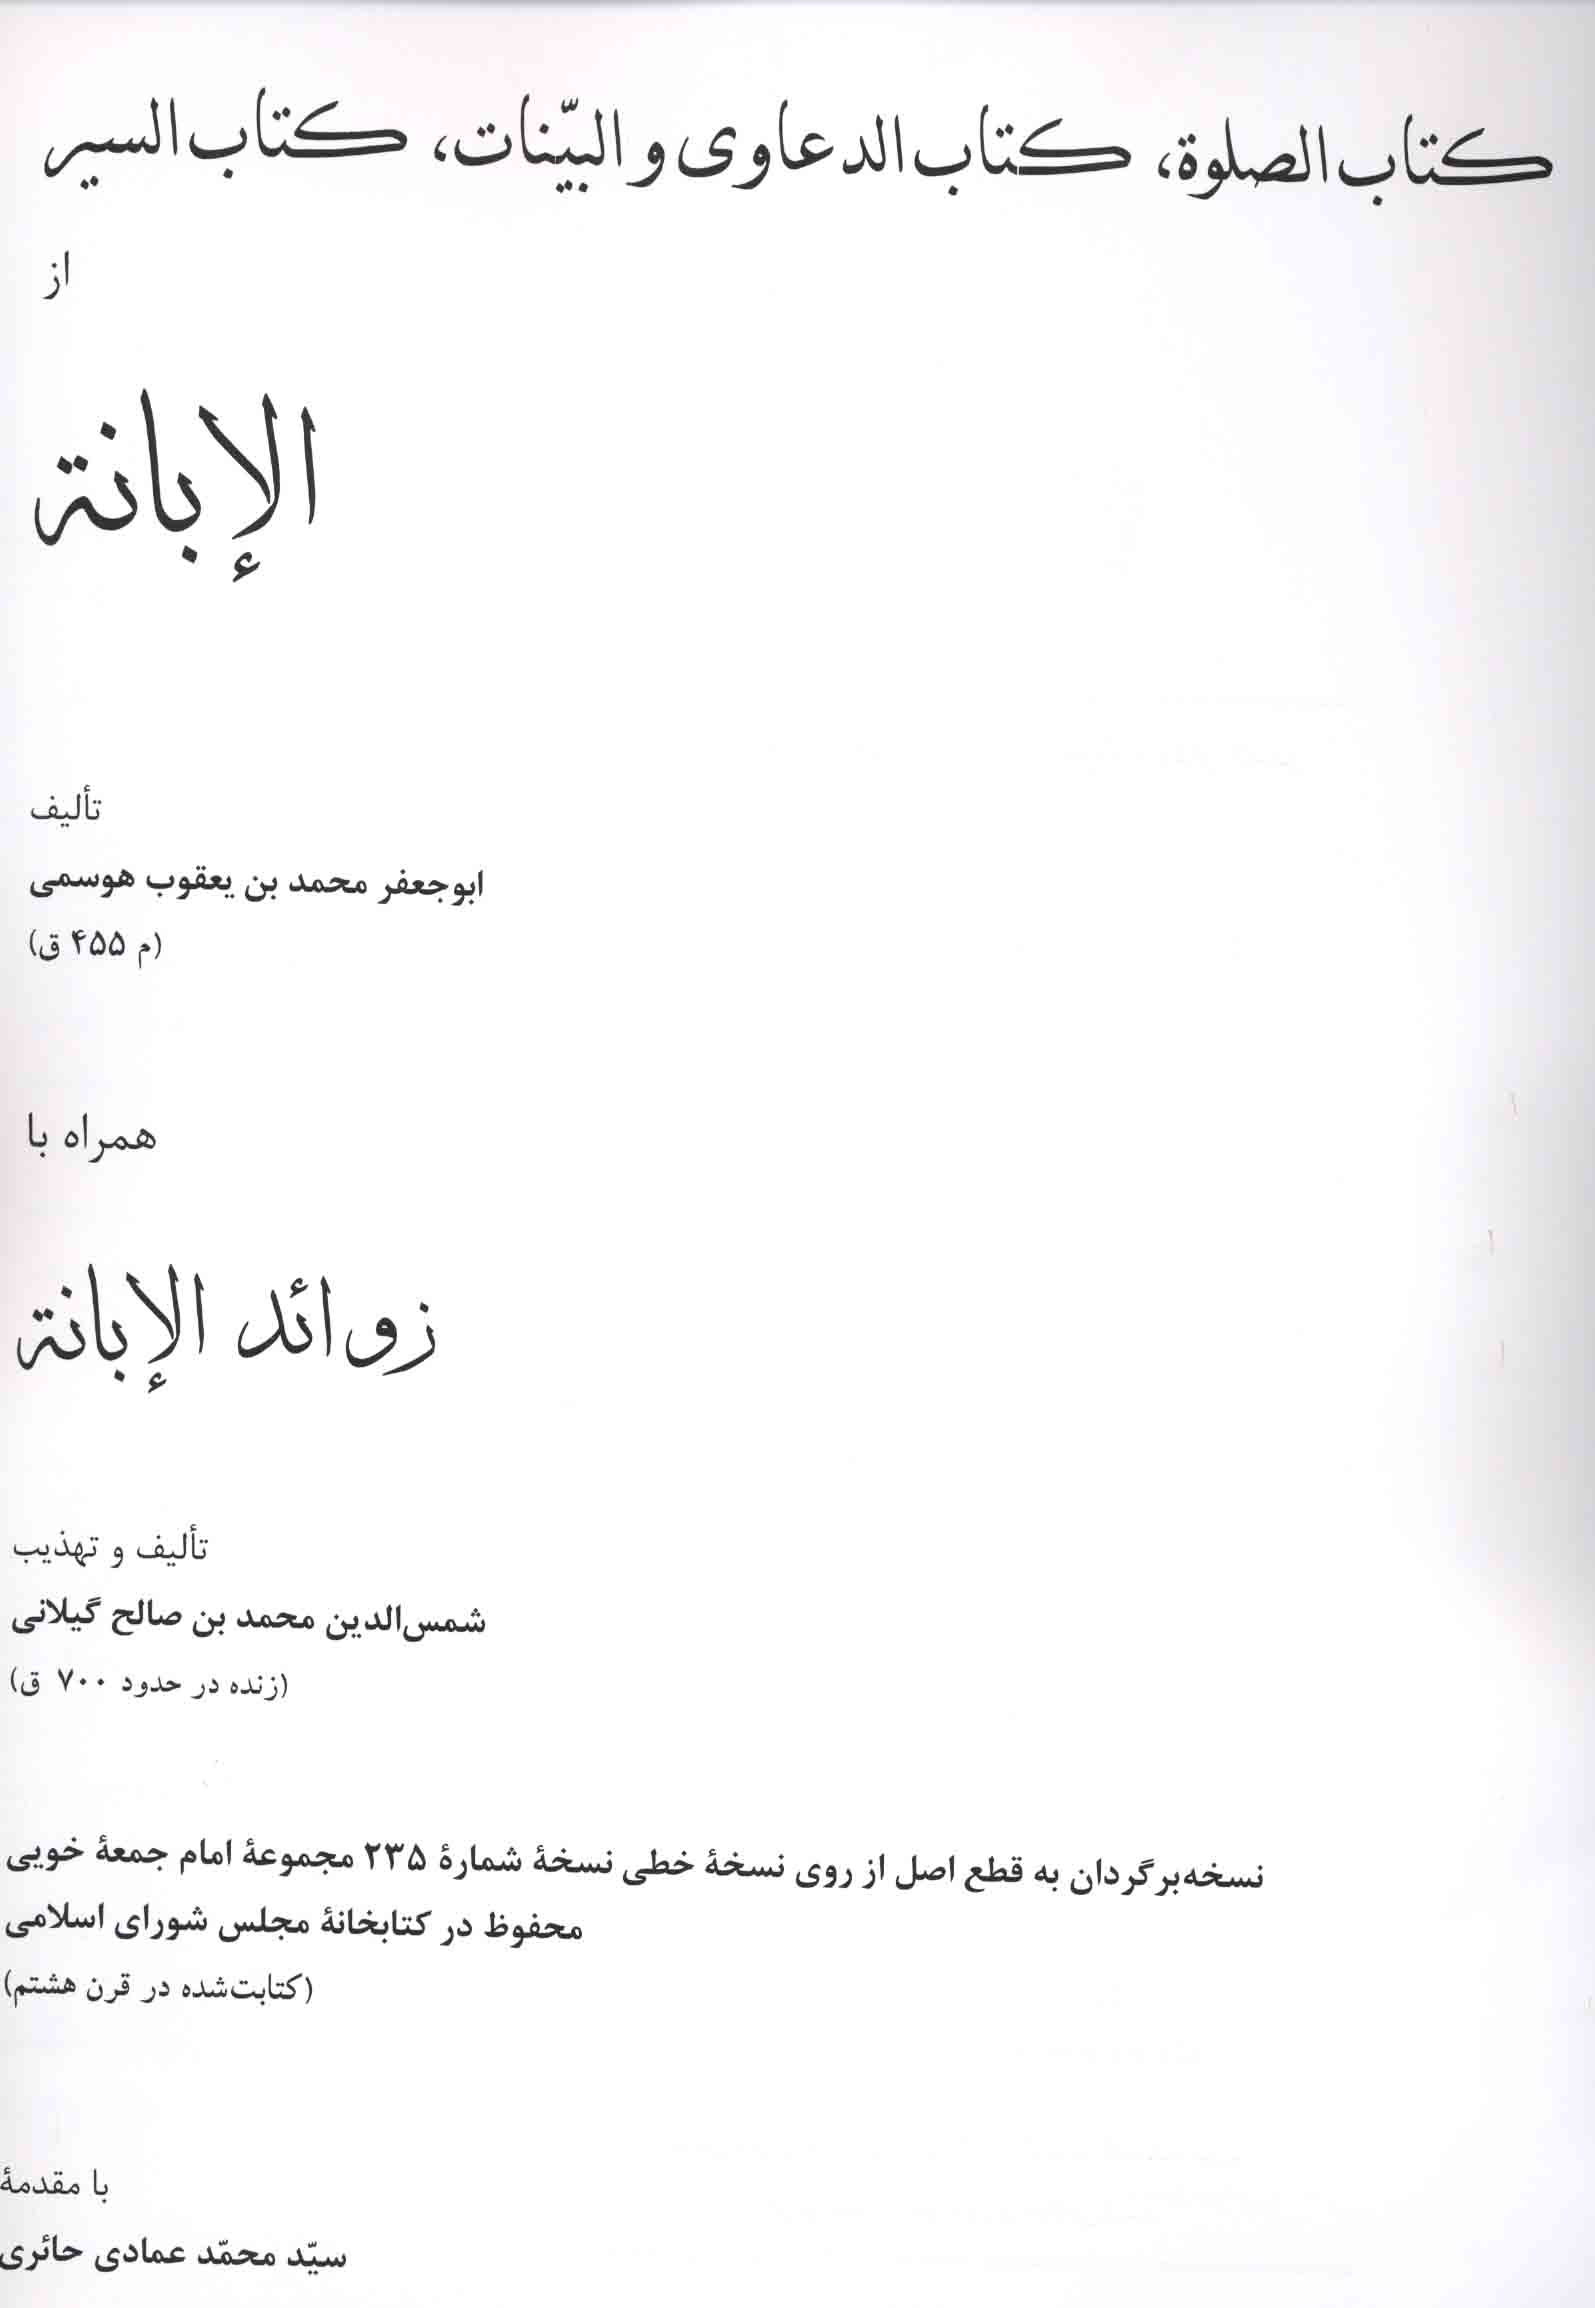 کتاب الصلوة، کتاب الدعاوی و البیّنات، کتاب السیر
از
الإبانة
تألیف
ابوجعفر محمد بن یعقوب هوسمی
(م ۴۵۵ ق)
همراه با
زوائد الإبانة
تألیف و تهذیب
شمس‌الدین محمد بن صالح گیلانی
(زنده در حدود ۷۰۰ ق)
نسخه‌برگردان به قطع اصل از روی نسخۀ خطی نسخۀ شمارۀ ۲۳۵ مجموعۀ امام جمعۀ خویی
محفوظ در کتابخانۀ مجلس شورای اسلامی
(کتابت‌شده در قرن هشتم)
با مقدمۀ
سیّد محمّد عمادی حائری